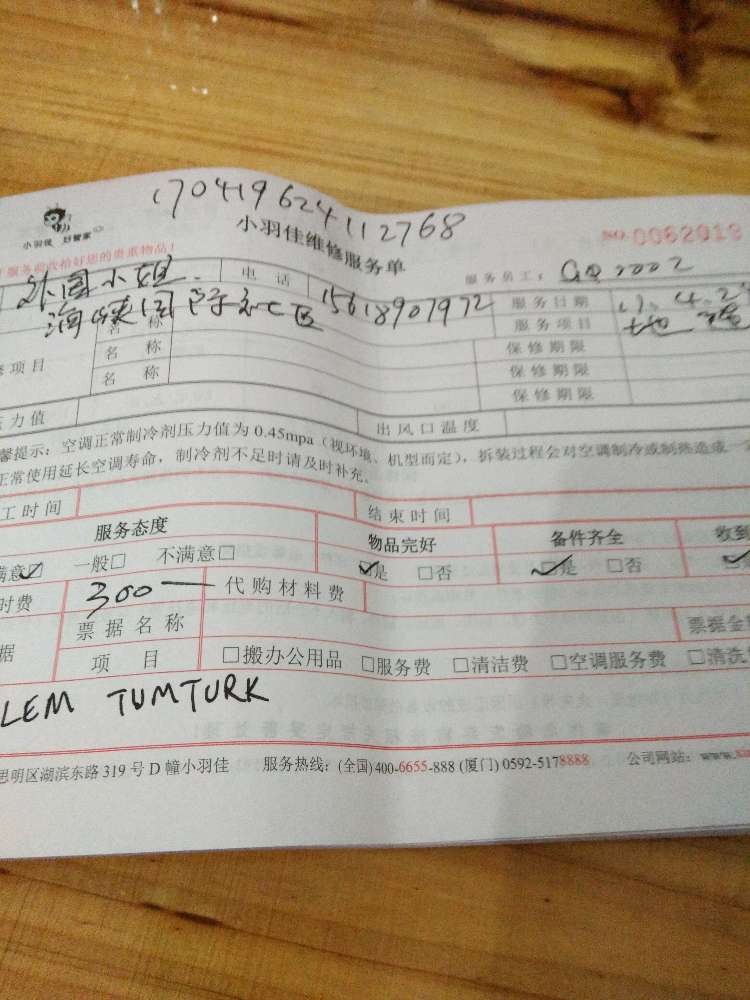 170419624112768
小羽佳 好管家
小羽佳维修服务单
NO.0062019
服务前收拾好您的贵重物品!
服务员工: GQ2002
外国小姐 电话 15618907972 服务日期 17.4.2
名称 服务项目
名称 保修期限
项目 名称 保修期限
保修期限
压力值 出风口温度
馨提示:空调正常制冷剂压力值为 0.45mpa(视环境、机型而定),拆装过程会对空调制冷或制热造成
正常使用延长空调寿命,制冷剂不足时请及时补充。
工时间 结束时间
服务态度 物品完好 备件齐全 收到
满意☑ 一般□ 不满意□ ☑是 □否 ☑是 □否
时费 300— 代购材料费
据 票据名称 票据金
项目 □搬办公用品 □服务费 □清洁费 □空调服务费 □清洗
LEM TUMTURK
思明区湖滨东路 319 号 D 幢小羽佳 服务热线:(全国)400-6655-888 (厦门) 0592-5178888 公司网站:www.